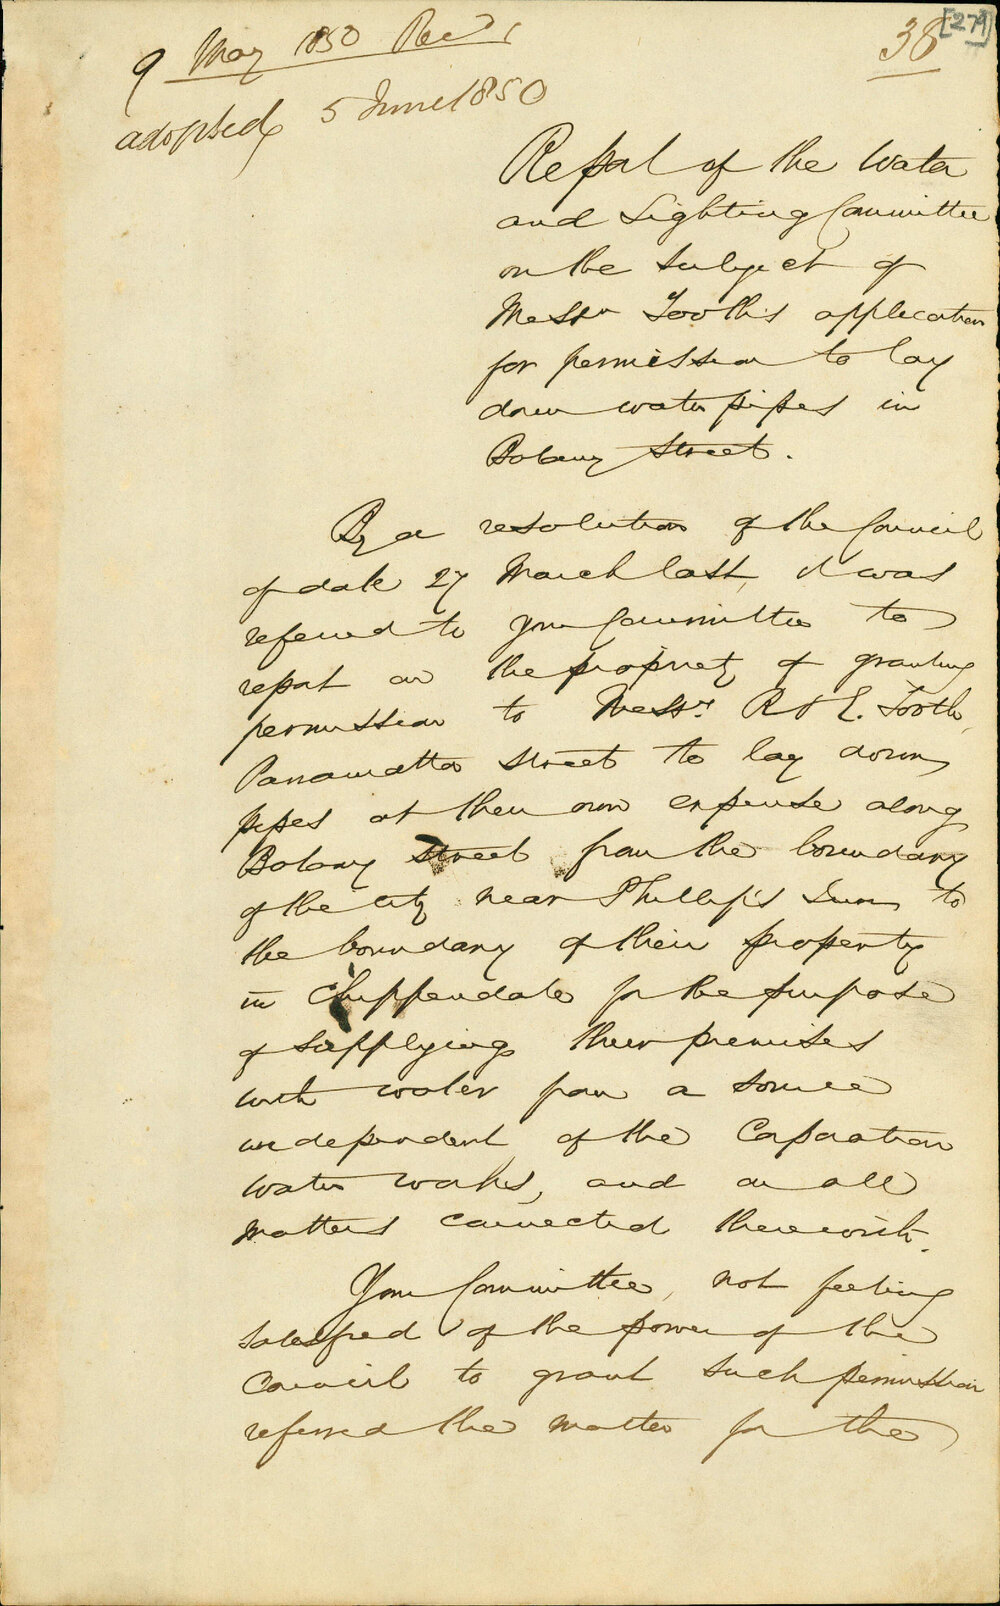 9 May 1850 Rec'd
38 [279]
adopted 5 June 1850
Report of the Water
and Lighting Committee
on the subject of
Messrs Tooth's application
for permission to lay
down water pipes in
Botany Street.
By a resolution of the Council
of date 27 March last, it was
referred to your Committee to
report on the propriety of granting
permission to Messrs. R & E. Tooth,
Parramatta Street to lay down
pipes at their own expense along
Botany Street from the boundary
of the city near Phillip's Inn to
the boundary of their property
in Chippendale for the purpose
of supplying their premises
with water from a source
independent of the Corporation
water works, and on all
matters connected therewith.
Your Committee, not feeling
satisfied of the power of the
Council to grant such permission
referred the matter for the